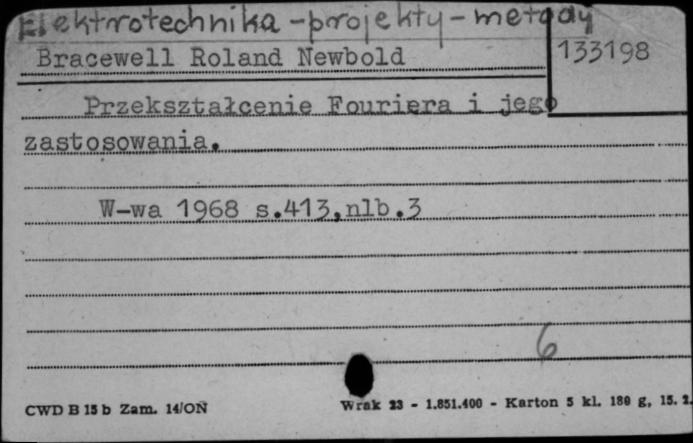 Elektrotechnika - projekty - metody
Bracewell Roland Newbold
133198
Przekształcenie Fouriera i jego
zastosowania.
W-wa 1968 s.413,nlb.3
6
CWD B 15 b Zam. 14/ON
Wrak 23 - 1.851.400 - Karton 5 kl. 180 g, 15. 2.